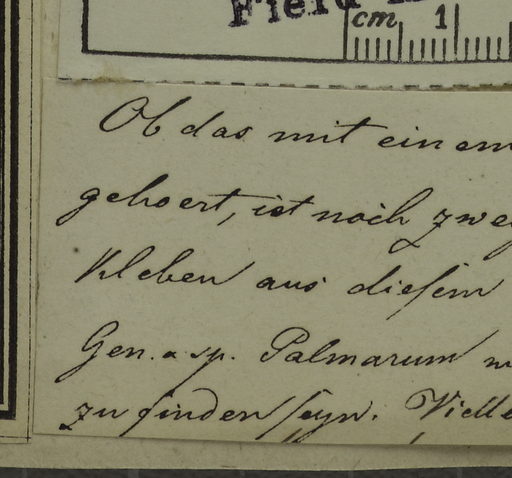 Field
cm 1
Ob das mit einem
gehoert, ist noch zwey
kleben aus diesem
Gen. a sp. Palmarum
zu finden seyn. Vielle